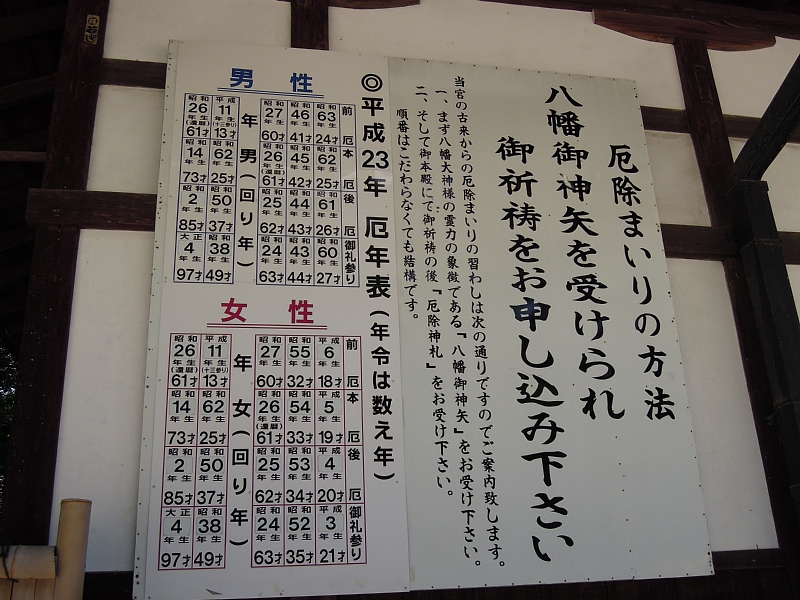 厄除まいりの方法
八幡御神矢を受けられ
御祈祷をお申し込み下さい
当宮の古来からの厄除まいりの習わしは次の通りですのでご案内致します。
一、まず八幡大神様の霊力の象徴である『八幡御神矢』をお受け下さい。
二、そして御本殿にて御祈祷の後『厄除神札』をお受け下さい。
順番はこだわらなくても結構です。
◎平成23年 厄年表(年令は数え年)
男性
前厄 昭和63年生 24才 昭和46年生 41才 昭和27年生 60才
本厄 昭和62年生 25才 昭和45年生 42才 昭和26年生(還暦) 61才
後厄 昭和61年生 26才 昭和44年生 43才 昭和25年生 62才
御礼参り 昭和60年生 27才 昭和43年生 44才 昭和24年生 63才
年男(回り年)
平成11年生(十三参り) 13才 昭和26年生(還暦) 61才
昭和62年生 25才 昭和14年生 73才
昭和50年生 37才 昭和2年生 85才
昭和38年生 49才 大正4年生 97才
女性
前厄 平成6年生 18才 昭和55年生 32才 昭和27年生 60才
本厄 平成5年生 19才 昭和54年生 33才 昭和26年生(還暦) 61才
後厄 平成4年生 20才 昭和53年生 34才 昭和25年生 62才
御礼参り 平成3年生 21才 昭和52年生 35才 昭和24年生 63才
年女(回り年)
平成11年生(十三参り) 13才 昭和26年生(還暦) 61才
昭和62年生 25才 昭和14年生 73才
昭和50年生 37才 昭和2年生 85才
昭和38年生 49才 大正4年生 97才